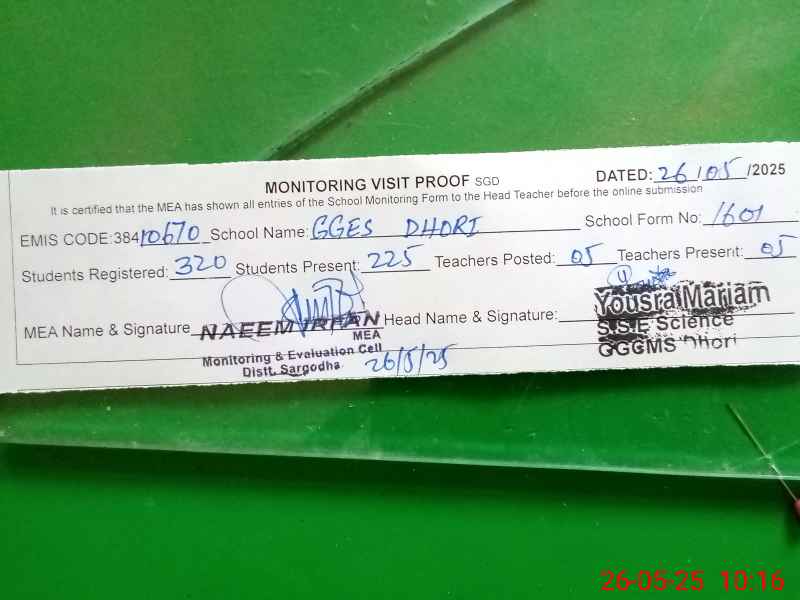 MONITORING VISIT PROOF SGD DATED: 26/05/2025
It is certified that the MEA has shown all entries of the School Monitoring Form to the Head Teacher before the online submission
EMIS CODE:38410670 School Name: GGES DHORI School Form No: 1601
Students Registered: 320 Students Present: 225 Teachers Posted: 05 Teachers Present: 05
MEA Name & Signature NAEEM IRFAN Head Name & Signature: Yousra Mariam
MEA S.S.E Science
Monitoring & Evaluation Cell GGCMS Dhori
Distt. Sargodha 26/5/25
26-05-25 10:16